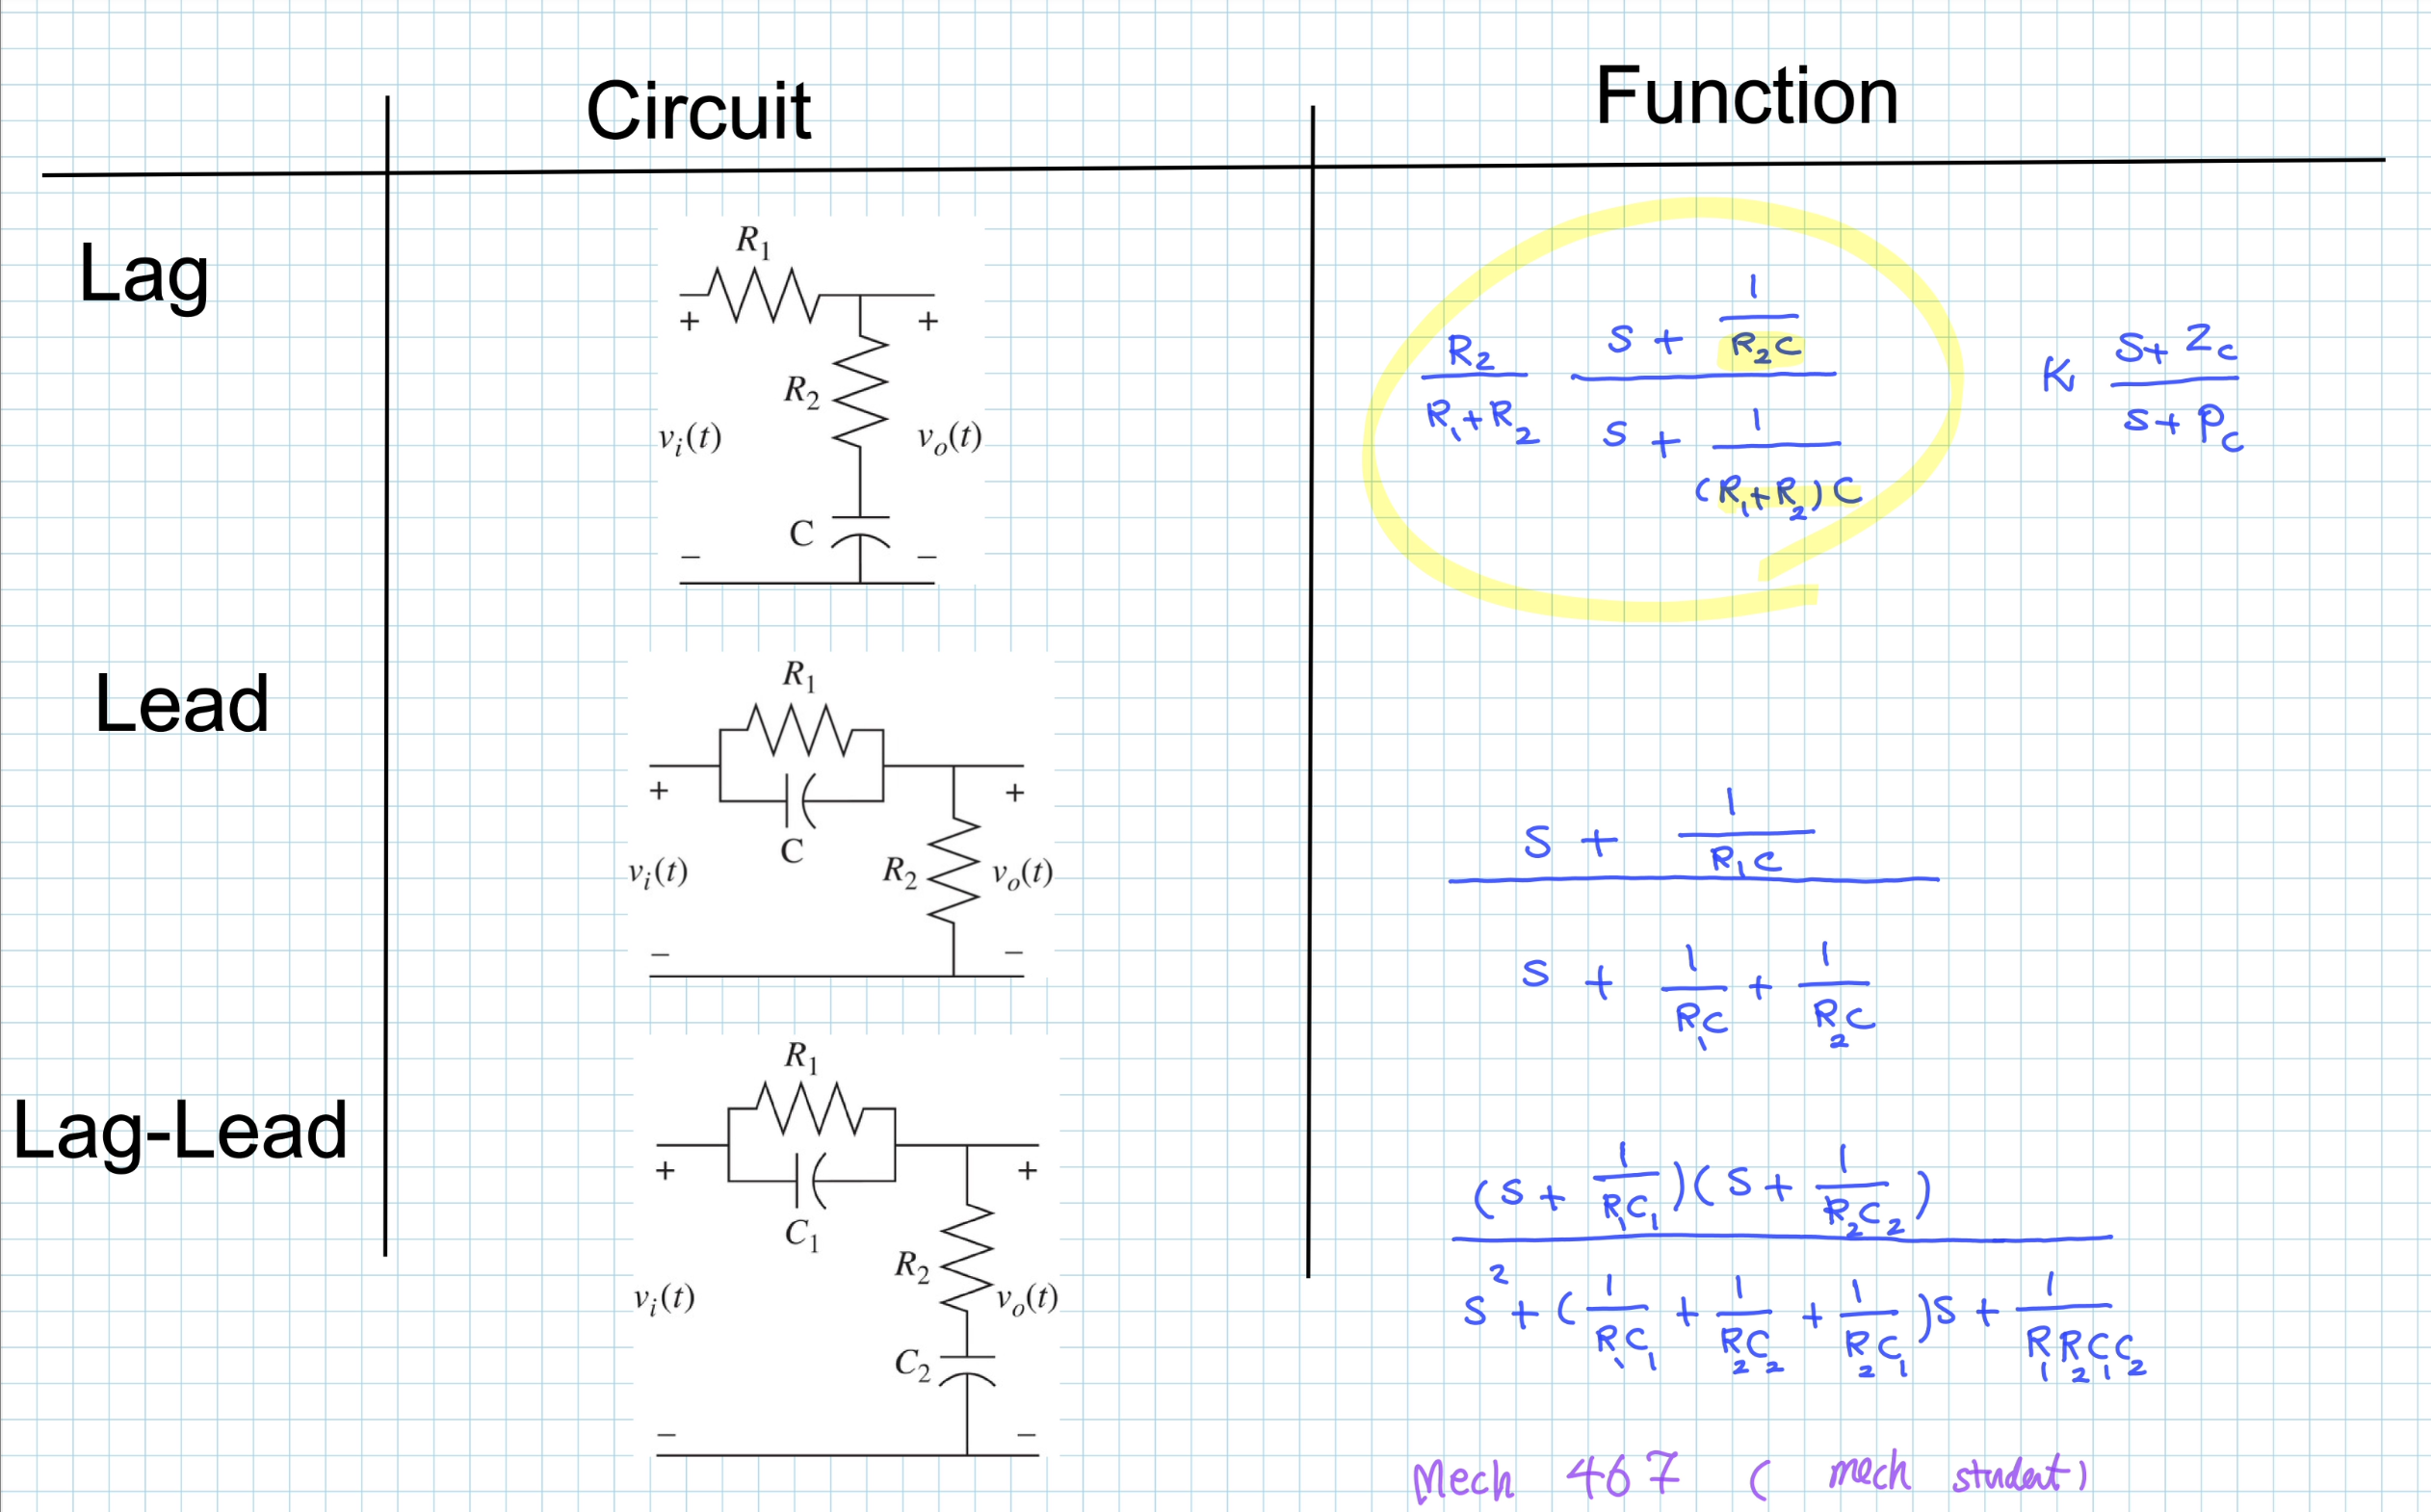 Circuit Function
Lag
R1
+ +
R2
vi(t) vo(t)
C
− −
R2 / (R1+R2) (s + 1/(R2C)) / (s + 1/((R1+R2)C)) K (s+Zc) / (s+Pc)
Lead
R1
+ +
C
vi(t) R2 vo(t)
− −
(s + 1/(R1C)) / (s + 1/(R1C) + 1/(R2C))
Lag-Lead
R1
+ +
C1
R2
vi(t) vo(t)
C2
− −
(s + 1/(R1C1))(s + 1/(R2C2)) / (s² + (1/(R1C1) + 1/(R2C2) + 1/(R2C1))s + 1/(R1R2C1C2))
Mech 467 (mech student)